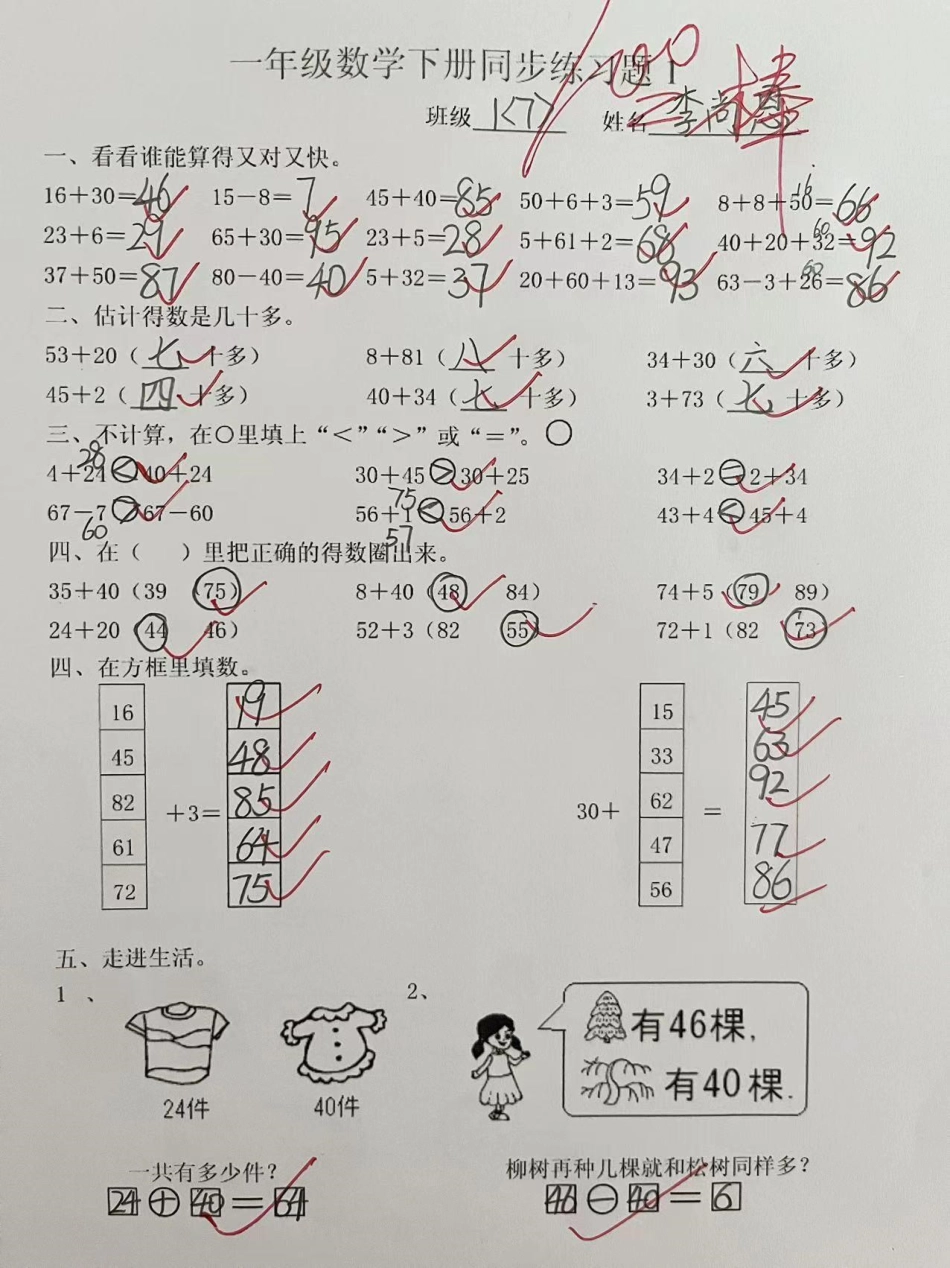 一年级数学下册同步练习题1
100
棒
班级 1<7> 姓名 李尚
一、看看谁能算得又对又快。
16+30=46 15-8=7 45+40=85 50+6+3=59 8+8+50=66
16
23+6=29 65+30=95 23+5=28 5+61+2=68 40+20+32=92
60
37+50=87 80-40=40 5+32=37 20+60+13=93 63-3+26=86
60
二、估计得数是几十多。
53+20(七十多) 8+81(八十多) 34+30(六十多)
45+2(四十多) 40+34(七十多) 3+73(七十多)
三、不计算,在○里填上“<”“>”或“=”。○
4+24<40+24 30+45>30+25 34+2=2+34
28 75
67-7>67-60 56+1<56+2 43+4<45+4
60 57
四、在( )里把正确的得数圈出来。
35+40(39 75) 8+40(48 84) 74+5(79 89)
24+20(44 46) 52+3(82 55) 72+1(82 73)
四、在方框里填数。
16 19 15 45
45 48 33 63
82 +3= 85 30+ 62 = 92
61 64 47 77
72 75 56 86
五、走进生活。
1、 2、
有46棵,
有40棵.
24件 40件
一共有多少件? 柳树再种几棵就和松树同样多?
24+40=64 46-40=6